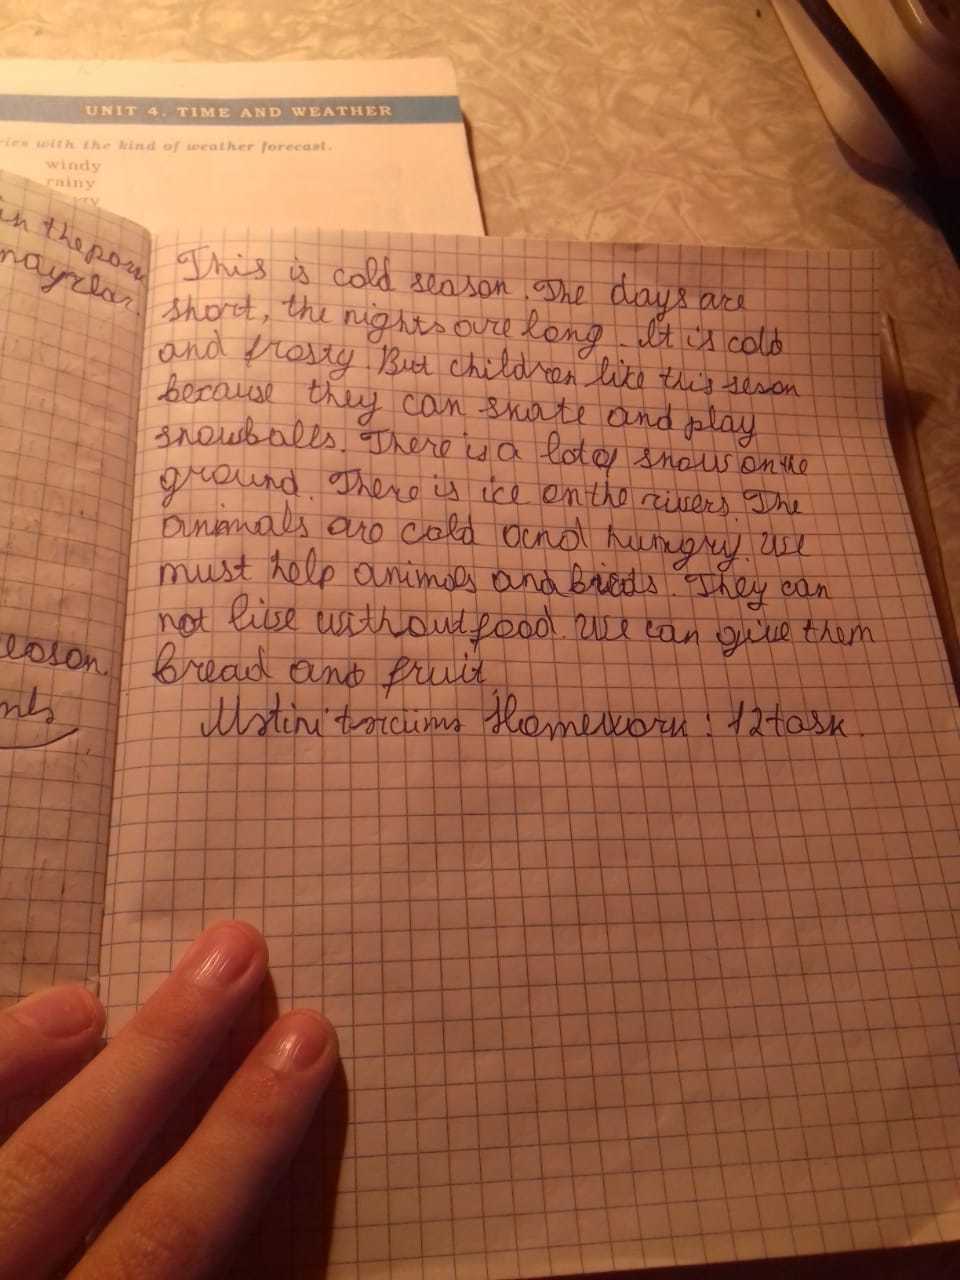 UNIT 4. TIME AND WEATHER
ries with the kind of weather forecast.
windy
rainy
in the
This is cold season. The days are
short, the nights are long. It is cold
and frosty. But children like this seson
because they can skate and play
snowballs. There is a lot of snow on the
ground. There is ice on the rivers. The
animals are cold and hungry. We
must help animols and birds. They can
not live without food. We can give them
bread and fruit.
Homework: 12 task.
eason.